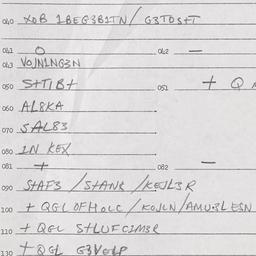 040 XOB 1BEG3B1TN/ G3TOS+T
041 O 042 —
043 VOJN1NG3N
050 S+T1B+ 051 + Q
060 AL8KA
070 SAL83
080 1N KEX
081 + 082 —
090 S+AF3 / S+ANR / KEJL3R
100 + QGL OFHOLC / KOJLN / AMU3LESN
110 + QGL S+LUFC1M3R
130 + QGL G3VELP